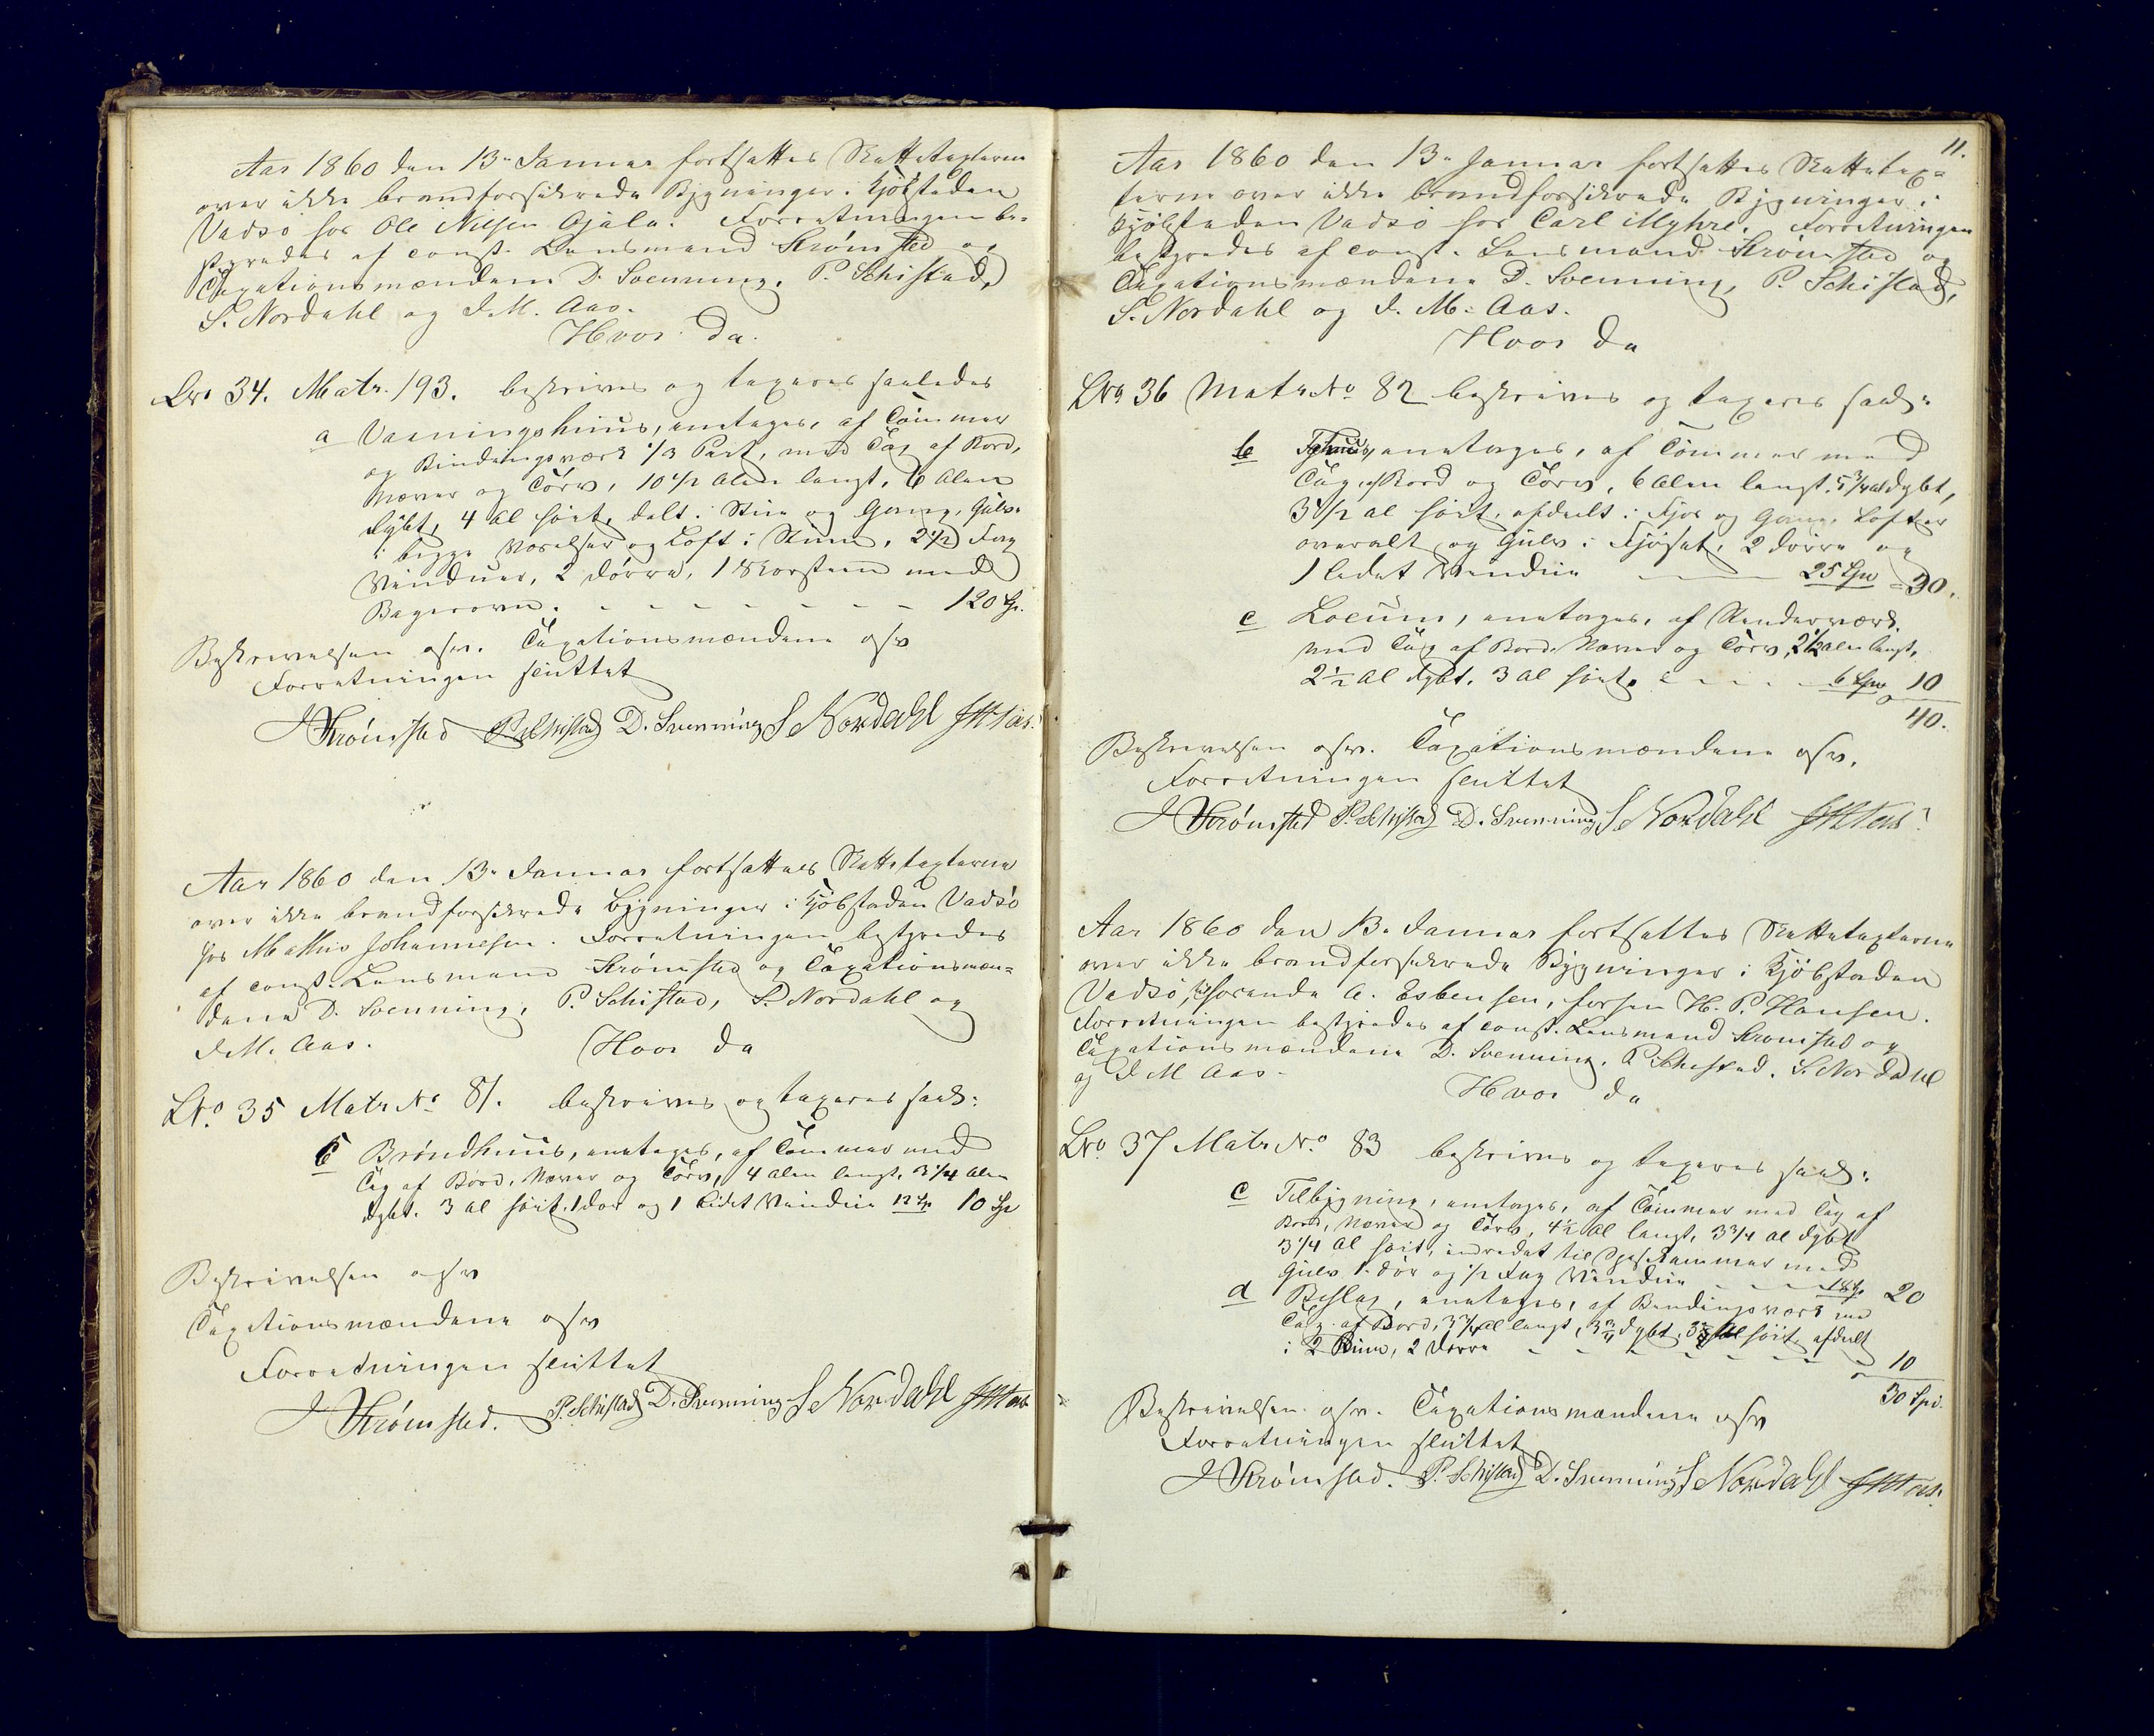 Aar 1860 den 13de Januar fortsattes Skattetaxterne
over ikke brandforsikrede Bygninger i Kjöbstaden
Vadsö hos Ole Nilsen Ojala. Forretningen be-
styredes af const. Lensmand Strömsted og
Taxationsmændene D. Svenning, P. Schistad,
S. Nordahl og J. M. Aas.
Hvor da
LNo 34. Matr. 193. beskrives og taxeres saaledes
a Vaaningshuus, anatages, af Tömmer
og Bindingsværk 1/3 Part, med Tag af Bord,
Næver og Törv, 10 1/2 Alen langt, 6 Alen
dybt, 4 Al höit, delt i Stue og Gang, Gulv
i begge Værelser og Loft i Stuen, 2 1/2 Fag
Vinduer, 2 Dörre, 1 Skorsteen med
Bagerovn. 120 Sp.
Beskrivelsen osv. Taxationsmændene osv
Forretningen sluttet
J Strömsted P. Schistad D. Svenning S Nordahl JMAas.
Aar 1860 den 13de Januar fortsattes Skattetaxterne
over ikke brandforsikrede Bygninger i Kjöbstaden Vadsö
hos Mathis Johannesen. Forretningen bestyredes
af const. Lensmand Strömsted og Taxationsmæn-
dene D. Svenning, P. Schistad, S. Nordahl og
J. M. Aas.
Hvor da
LNo. 35 Matr No 81. beskrives og taxeres saal:
b Bröndhuus, anatages, af Tömmer med
Tag af Bord, Næver og Törv, 4 Alen langt, 3 1/4 Alen
dybt. 3 Al höit, 1 dör og 1 lidet Vindue 12 Sp 10 Sp
Beskrivelsen osv
Taxationsmændene osv
Forretningen sluttet
J Strömsted. P. Schistad D. Svenning S Nordahl JMAas
11.
Aar 1860 den 13de Januar fortsattes Skattetax-
terne over ikke brandforsikrede Bygninger i
Kjöbstaden Vadsö hos Carl Myhre. Forretningen
bestyredes af const. Lensmand Strömsted og
Taxationsmændene D. Svenning, P. Schistad,
S. Nordahl og J. M. Aas.
Hvor da
LNo 36 Matr No 82 beskrives og taxeres saal:
b anatages, af Tömmer med
Tag af Bord og Törv, 6 Alen langt, 5 3/4 al dybt,
3 1/2 al höit, afdeelt i Fjös og Gang, Lofter
overalt og Gulv i Fjöset, 2 Dörre og
1 lidet Vindue 25 Spd 30.
c Locum, anatages, af Stenderværk,
med Tag af Bord, Næver og Törv, 2 1/2 alen langt,
2 1/2 al dybt. 3 al höit. 6 Spd 10
40.
Beskrivelsen osv. Taxationsmændene osv.
Forretningen sluttet
J Strömsted P. Schistad D. Svenning S Nordahl JMAas
Aar 1860 den 13de Januar fortsattes Skattetaxterne
over ikke brandforsikrede Bygninger i Kjöbstaden
Vadsö, tilhörende A. Esbensen, forhen H. P. Hansen.
Forretningen bestyredes af const. Lensmand Strömsted og
Taxationsmændene D. Svenning, P. Schistad, S. Nordahl
og J M Aas.
Hvor da
LNo. 37 Matr No. 83 beskrives og taxeres saal:
c Tilbygning, anatages, af Tömmer med Tag af
Bord, Næver og Törv, 4 1/2 al langt, 3 3/4 al dybt
3 1/4 al höit, indredet til Spisekammer med
Gulv 1 dör og 1/2 Fag Vindue 18 Sp 20
d Beslag, anatages, af Bindingsværk med
Tag af Bord, 3 3/4 al langt, dybt, höit, afdeelt
i 2 Rum, 2 Dörre 10
30 Spd.
Beskrivelsen osv. Taxationsmændene osv
Forretningen sluttet
J Strömsted. P. Schistad D. Svenning S Nordahl JMAas.